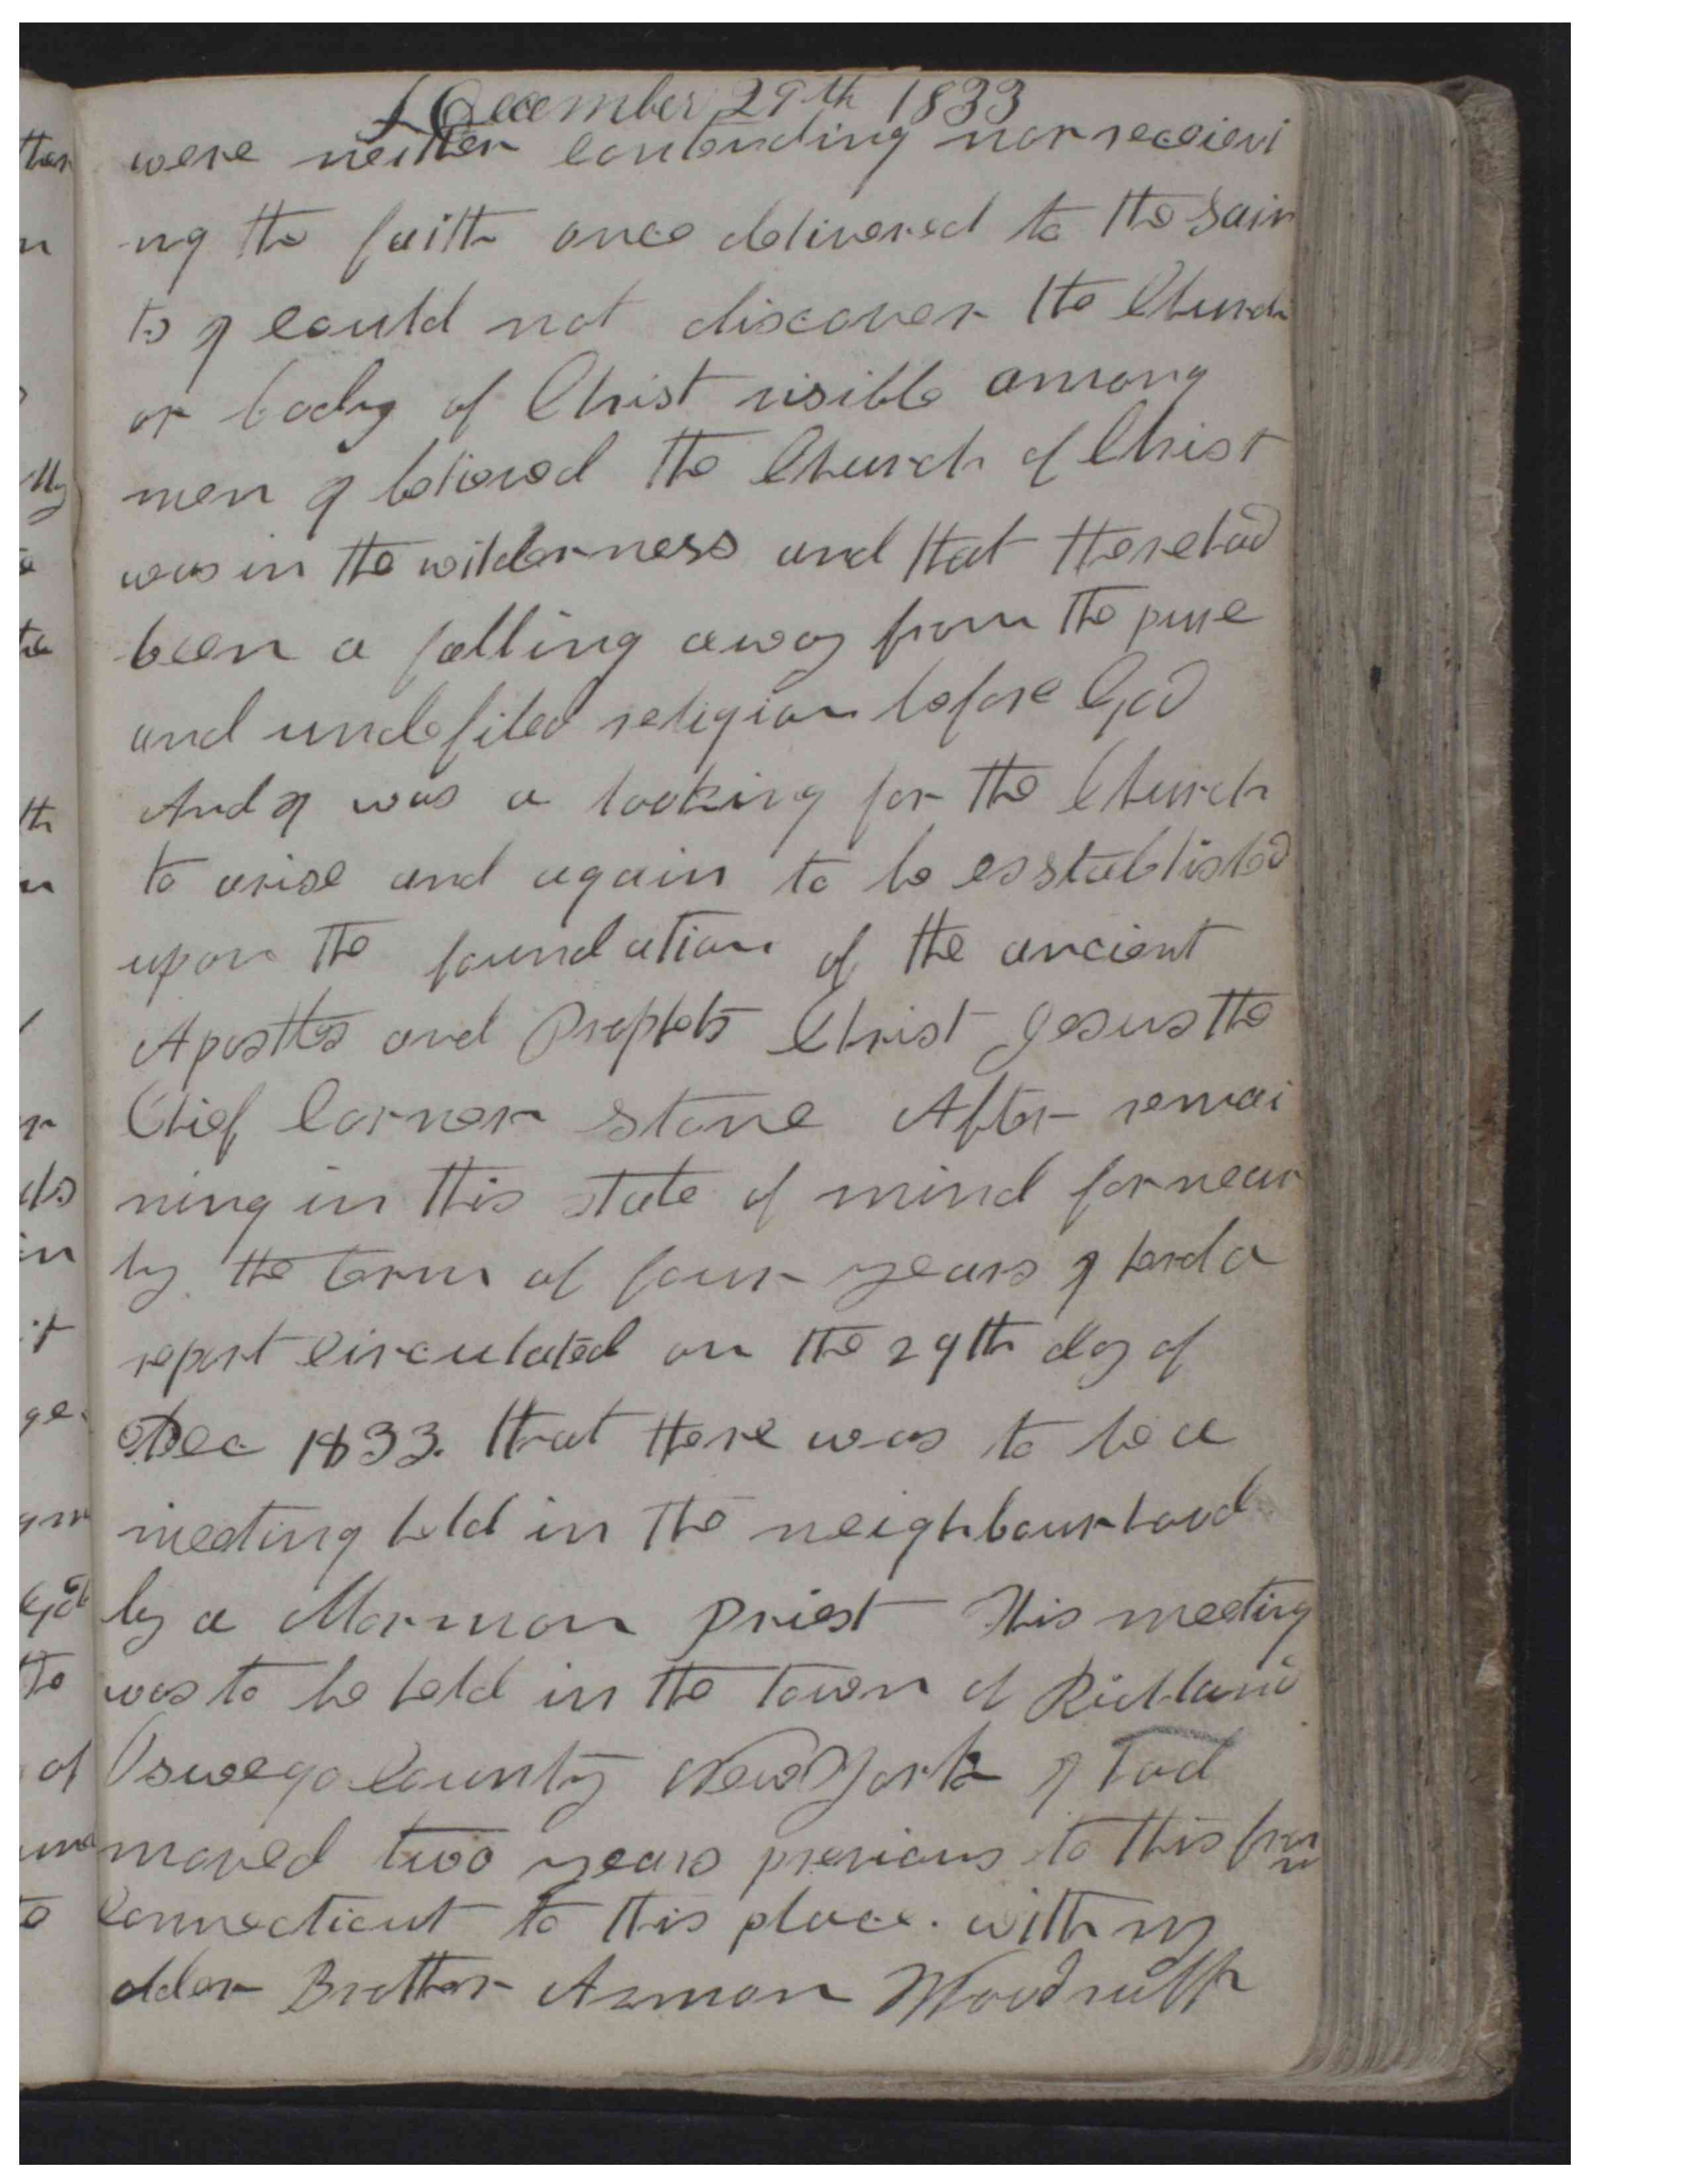 December 29th 1833
were neither contending nor receievi
-ng the faith once delivered to the Sain
ts I could not discover the Church
or body of Christ visible among
men I believed the Church of Christ
was in the wilderness and that there had
been a falling away from the pure
and undefiled religion before God
And I was a looking for the Church
to arise and again to be esstablished
upon the foundation of the ancient
Apostles and Prophets Christ Jesus the
Chief Corner stone After remai
ning in this state of mind for near
ly the term of four years I herd a
report circulated on the 29th day of
Dec 1833. that there was to be a
meeting held in the neighbourhood
by a Mormon Priest This meeting
was to be held in the town of Richland
Oswego County New York I had
moved two years previous to this from
Connecticut to this place. with my
older Brother Azmon Woodruff